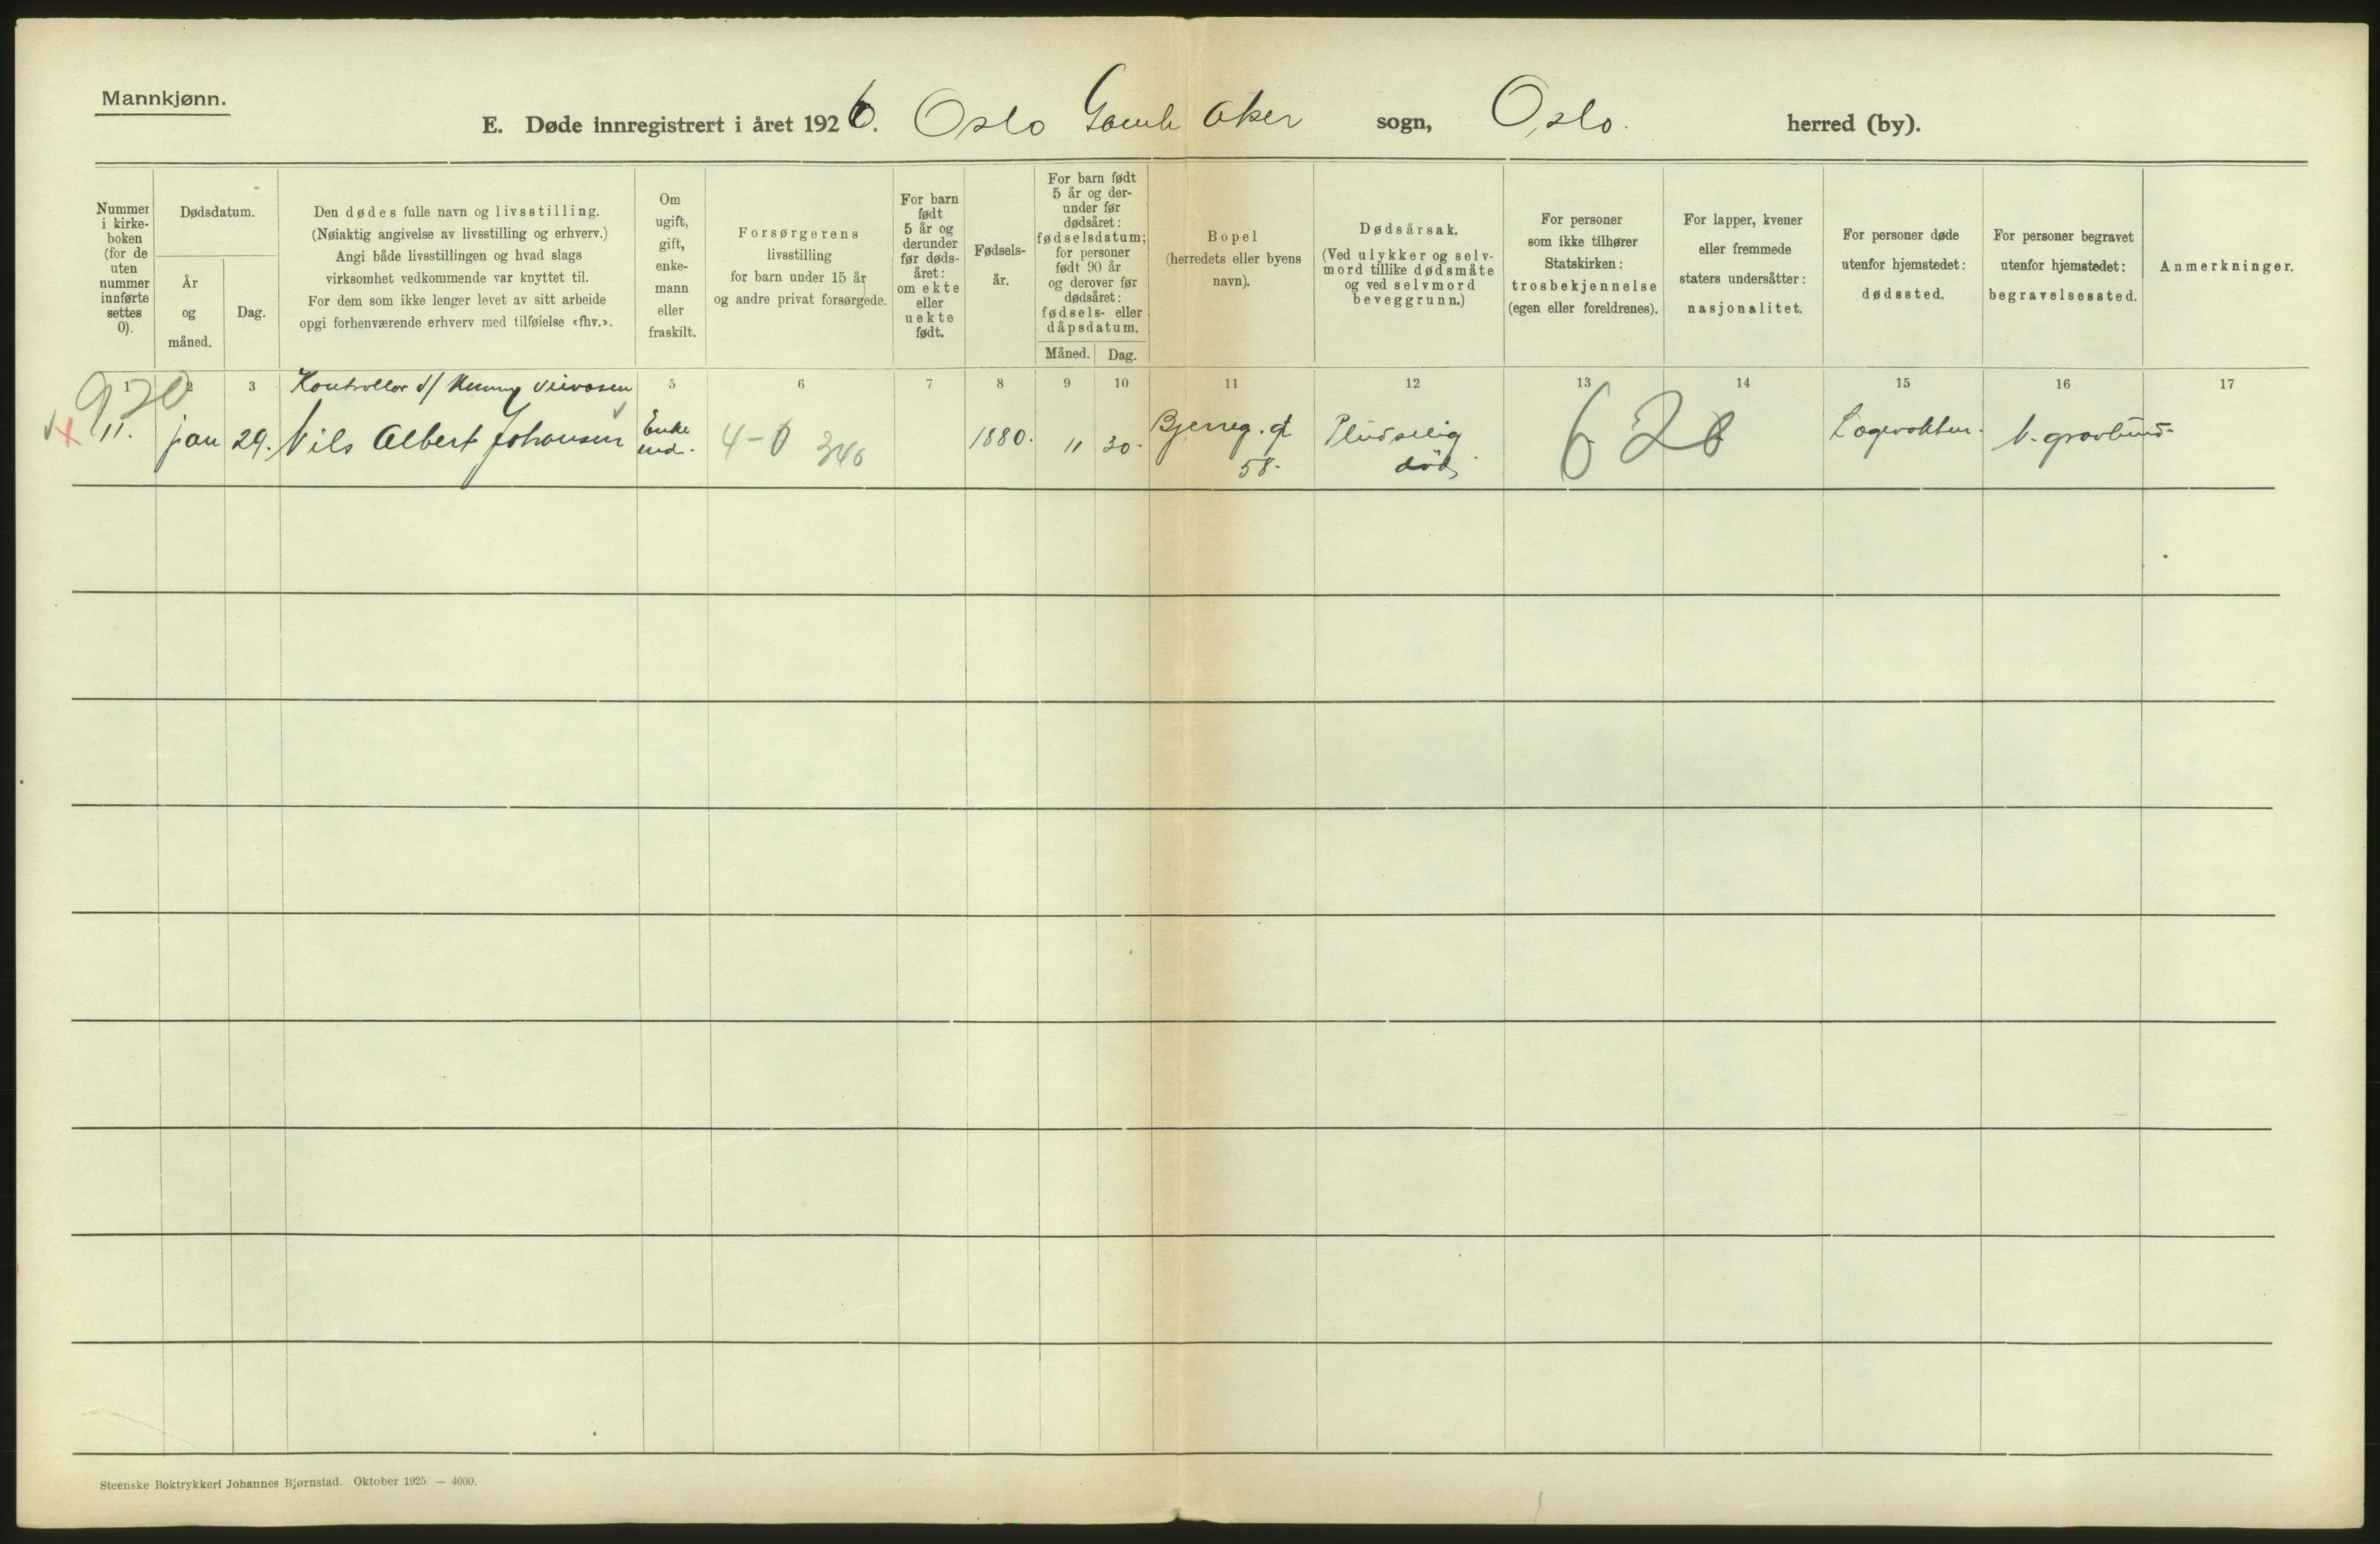 Mannkjønn.
E. Døde innregistrert i året 1926. Oslo Gamle Aker sogn, Oslo. herred (by).
Nummer i kirke- boken (for de uten nummer innførte settes 0).
Dødsdatum.
År og måned.
Dag.
Den dødes fulle navn og livsstilling.
(Nøiaktig angivelse av livsstilling og erhverv.)
Angi både livsstillingen og hvad slags
virksomhet vedkommende var knyttet til.
For dem som ikke lenger levet av sitt arbeide
opgi forhenværende erhverv med tilføielse «fhv.».
Om ugift, gift, enke- mann eller fraskilt.
Forsørgerens
livsstilling
for barn under 15 år
og andre privat forsørgede.
For barn født 5 år og derunder før døds- året: om ekte eller uekte født.
Fødsels- år.
For barn født 5 år og der- under før dødsåret: fødselsdatum; for personer født 90 år og derover før dødsåret: fødsels- eller dåpsdatum.
Måned. Dag.
Bopel
(herredets eller byens
navn).
Dødsårsak.
(Ved ulykker og selv-
mord tillike dødsmåte
og ved selvmord
beveggrunn.)
For personer
som ikke tilhører
Statskirken:
trosbekjennelse
(egen eller foreldrenes).
For lapper, kvener
eller fremmede
staters undersåtter:
nasjonalitet.
For personer døde
utenfor hjemstedet:
dødssted.
For personer begravet
utenfor hjemstedet:
begravelsessted.
Anmerkninger.
1 2 3 5 6 7 8 9 10 11 12 13 14 15 16 17
920
Kontrollør v/
11. jan 29. Nils Albert Johansen
Enke
md.
4-0 346
1880. 11 30-
Bjerreg. gt
58-
Pludselig
død
620
Lægevakten.
V. gravlund-
Steenske Boktrykkeri Johannes Bjørnstad. Oktober 1925. — 4000.